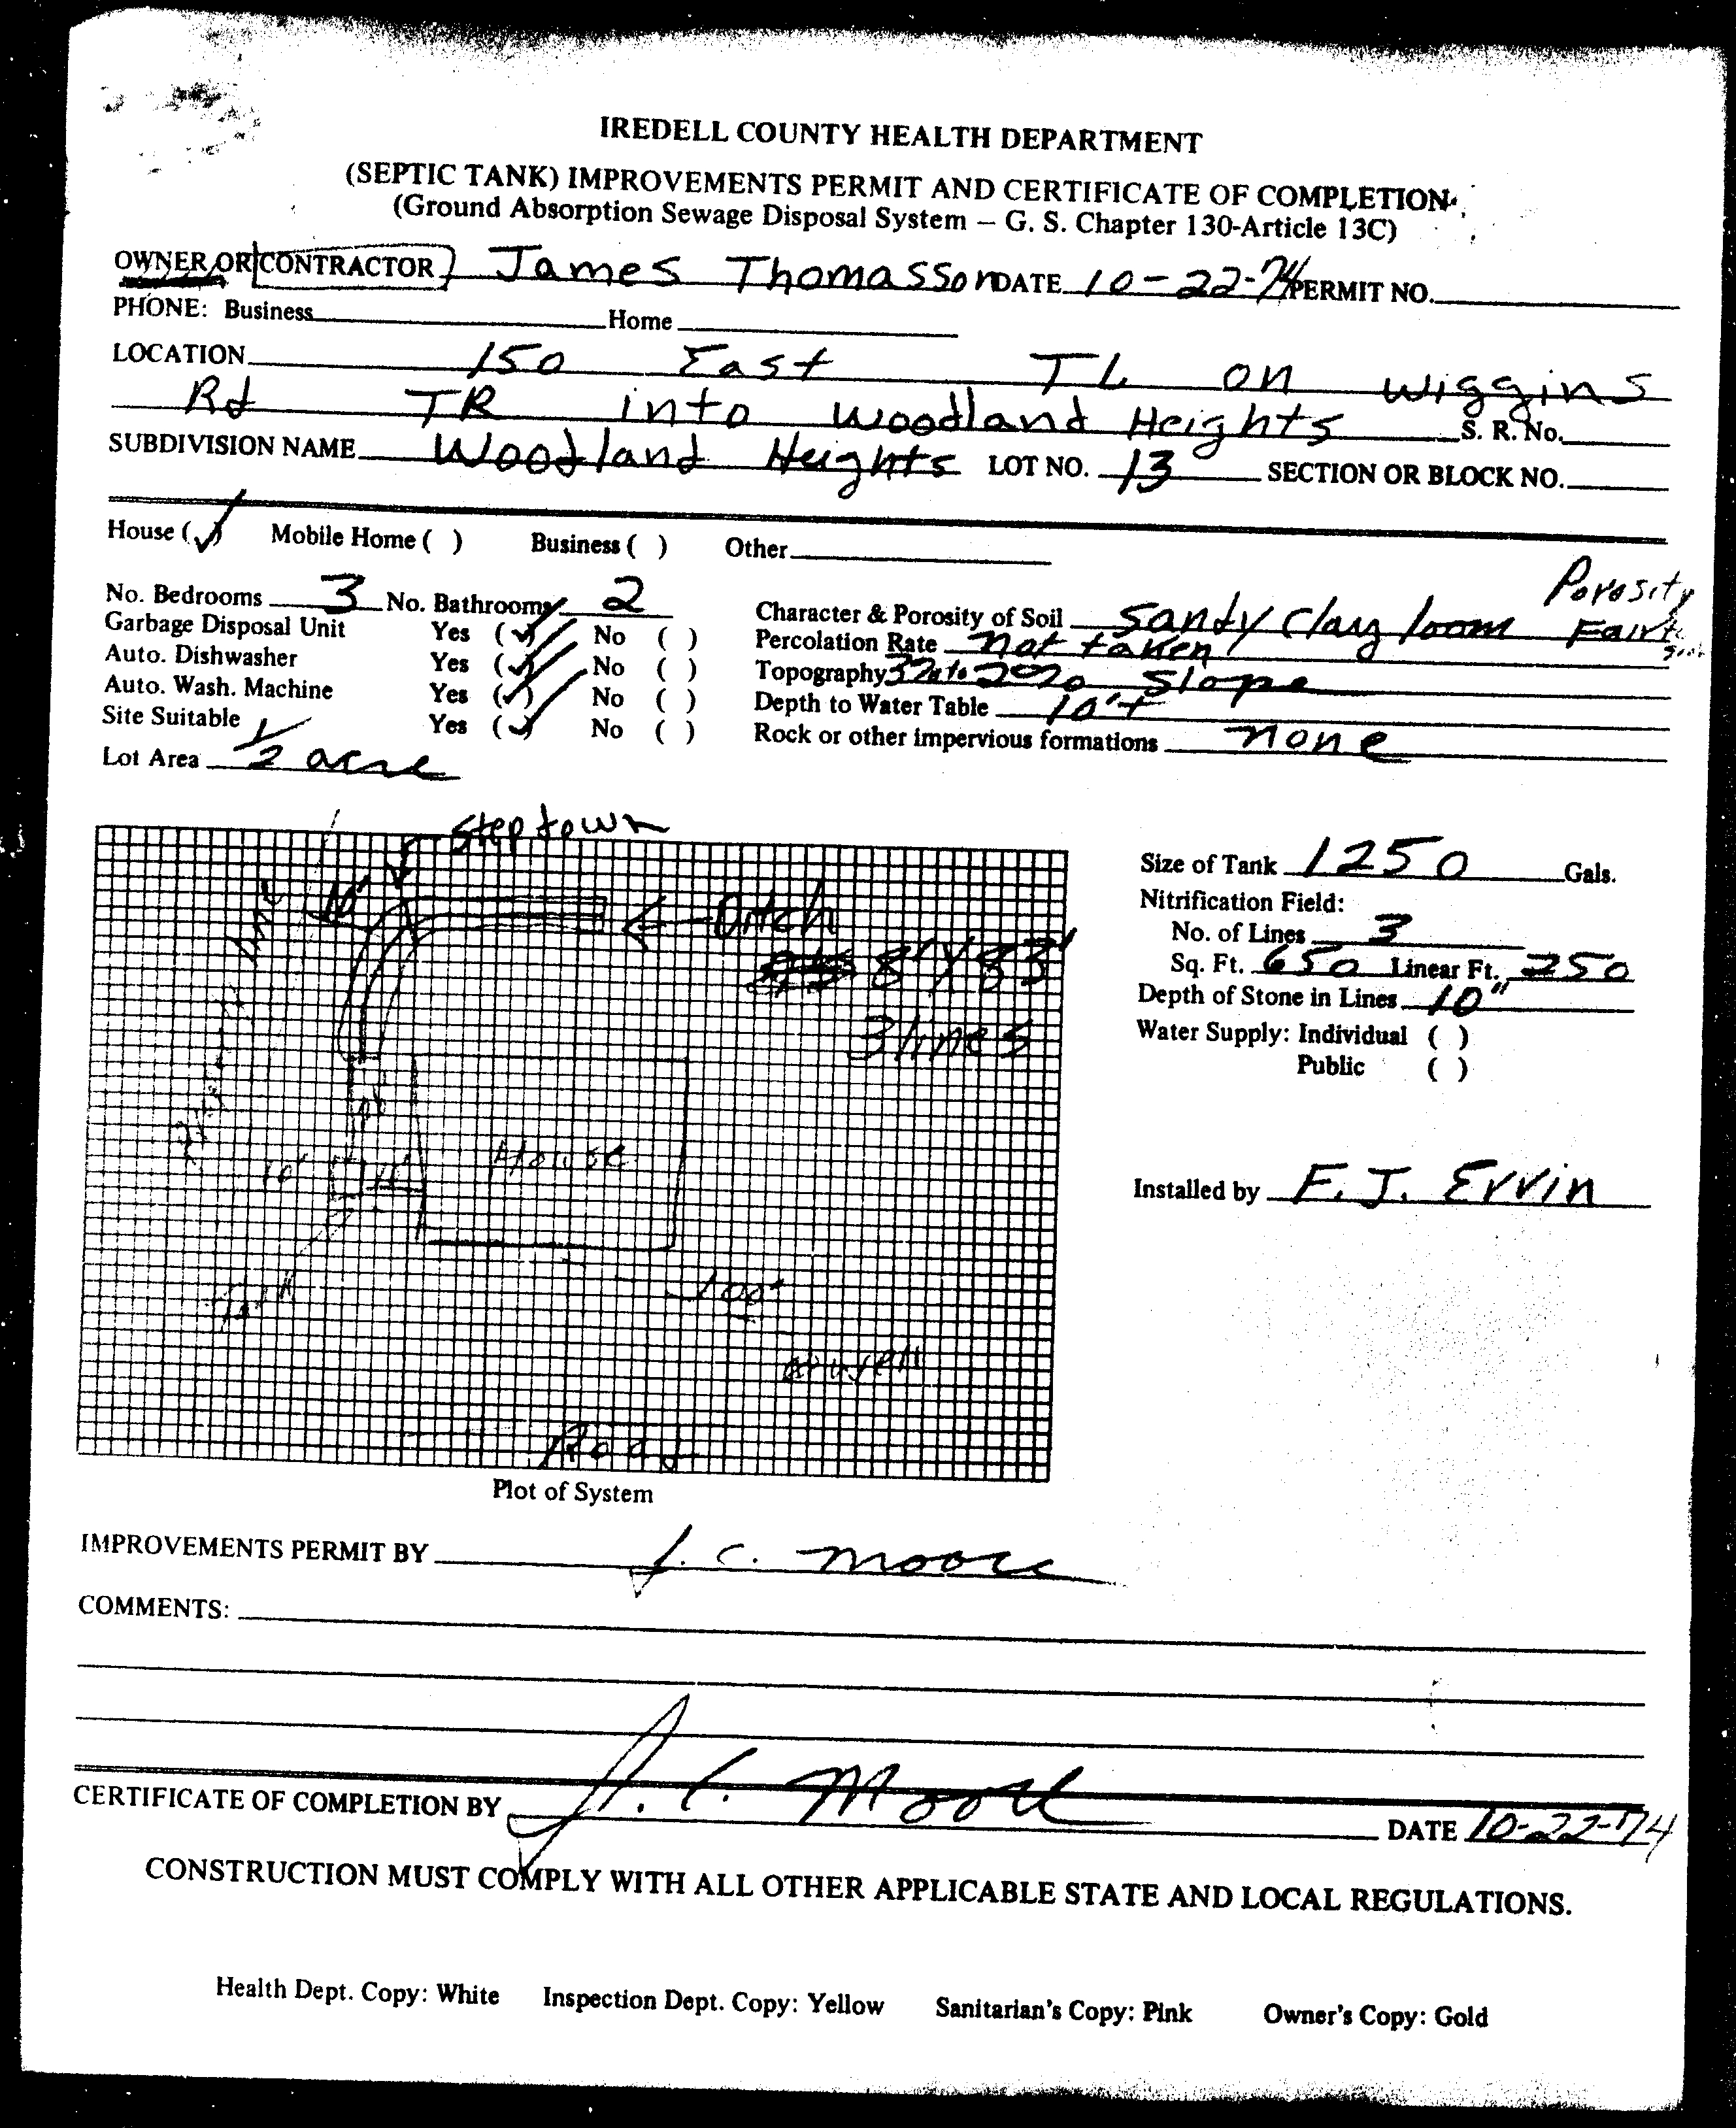 IREDELL COUNTY HEALTH DEPARTMENT
(SEPTIC TANK) IMPROVEMENTS PERMIT AND CERTIFICATE OF COMPLETION
(Ground Absorption Sewage Disposal System – G. S. Chapter 130-Article 13C)
OWNER OR CONTRACTOR James Thomasson DATE 10-22-74 PERMIT NO.
PHONE: Business Home
LOCATION 150 East TL on Wiggins
Rd TR into Woodland Heights S. R. No.
SUBDIVISION NAME Woodland Heights LOT NO. 13 SECTION OR BLOCK NO.
House (✓) Mobile Home ( ) Business ( ) Other
No. Bedrooms 3 No. Bathrooms 2
Garbage Disposal Unit Yes (✓) No ( )
Auto. Dishwasher Yes (✓) No ( )
Auto. Wash. Machine Yes (✓) No ( )
Site Suitable Yes (✓) No ( )
Lot Area 1/2 acre
Porosity
Character & Porosity of Soil Sandy Clay loom Fair to
Percolation Rate not taken
Topography slope
Depth to Water Table 10'+
Rock or other impervious formations none
Steptown
10'
line
Ditch
8' X 83'
3 lines
House
10'
Tank
100+
Road
Plot of System
Size of Tank 1250 Gals.
Nitrification Field:
No. of Lines 3
Sq. Ft. 650 Linear Ft. 250
Depth of Stone in Lines 10"
Water Supply: Individual ( )
Public ( )
Installed by F. J. Ervin
IMPROVEMENTS PERMIT BY J. C. Moore
COMMENTS:
CERTIFICATE OF COMPLETION BY J. C. Moore DATE 10-22-74
CONSTRUCTION MUST COMPLY WITH ALL OTHER APPLICABLE STATE AND LOCAL REGULATIONS.
Health Dept. Copy: White Inspection Dept. Copy: Yellow Sanitarian's Copy: Pink Owner's Copy: Gold